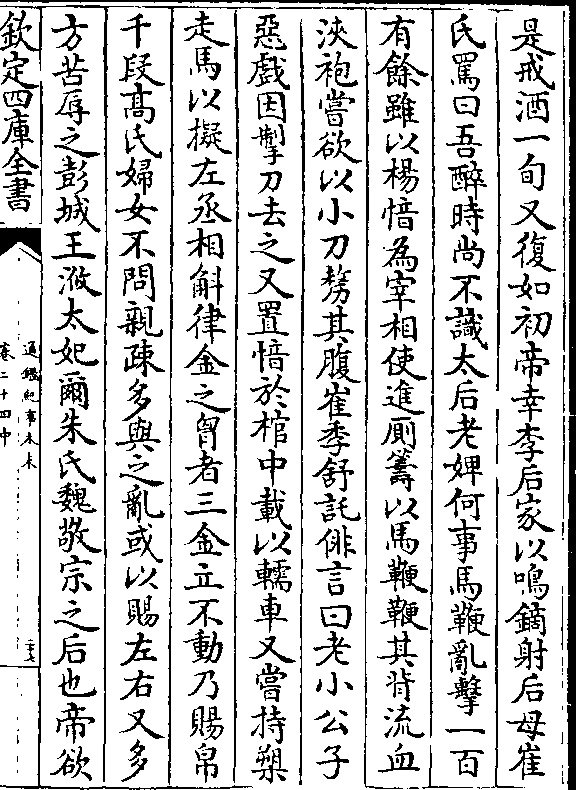 是戒酒一旬又復如初帝幸李后家以鳴鏑射后母崔
氏罵曰吾醉時尚不識太后老婢何事馬鞭亂擊一百
有餘雖以楊愔為宰相使進厠籌以馬鞭鞭其背流血
浹袍嘗欲以小刀剺其腹崔季舒託俳言曰老小公子
惡戲因掣刀去之又置愔於棺中載以轜車又嘗持槊
走馬以擬左丞相斛律金之胷者三金立不動乃賜帛
千段髙氏婦女不問親疎多與之亂或以賜左右又多
方苦辱之彭城王浟太妃爾朱氏魏敬宗之后也帝欲
欽定四庫全書
通鑑紀事本末
卷二十四中
二十七